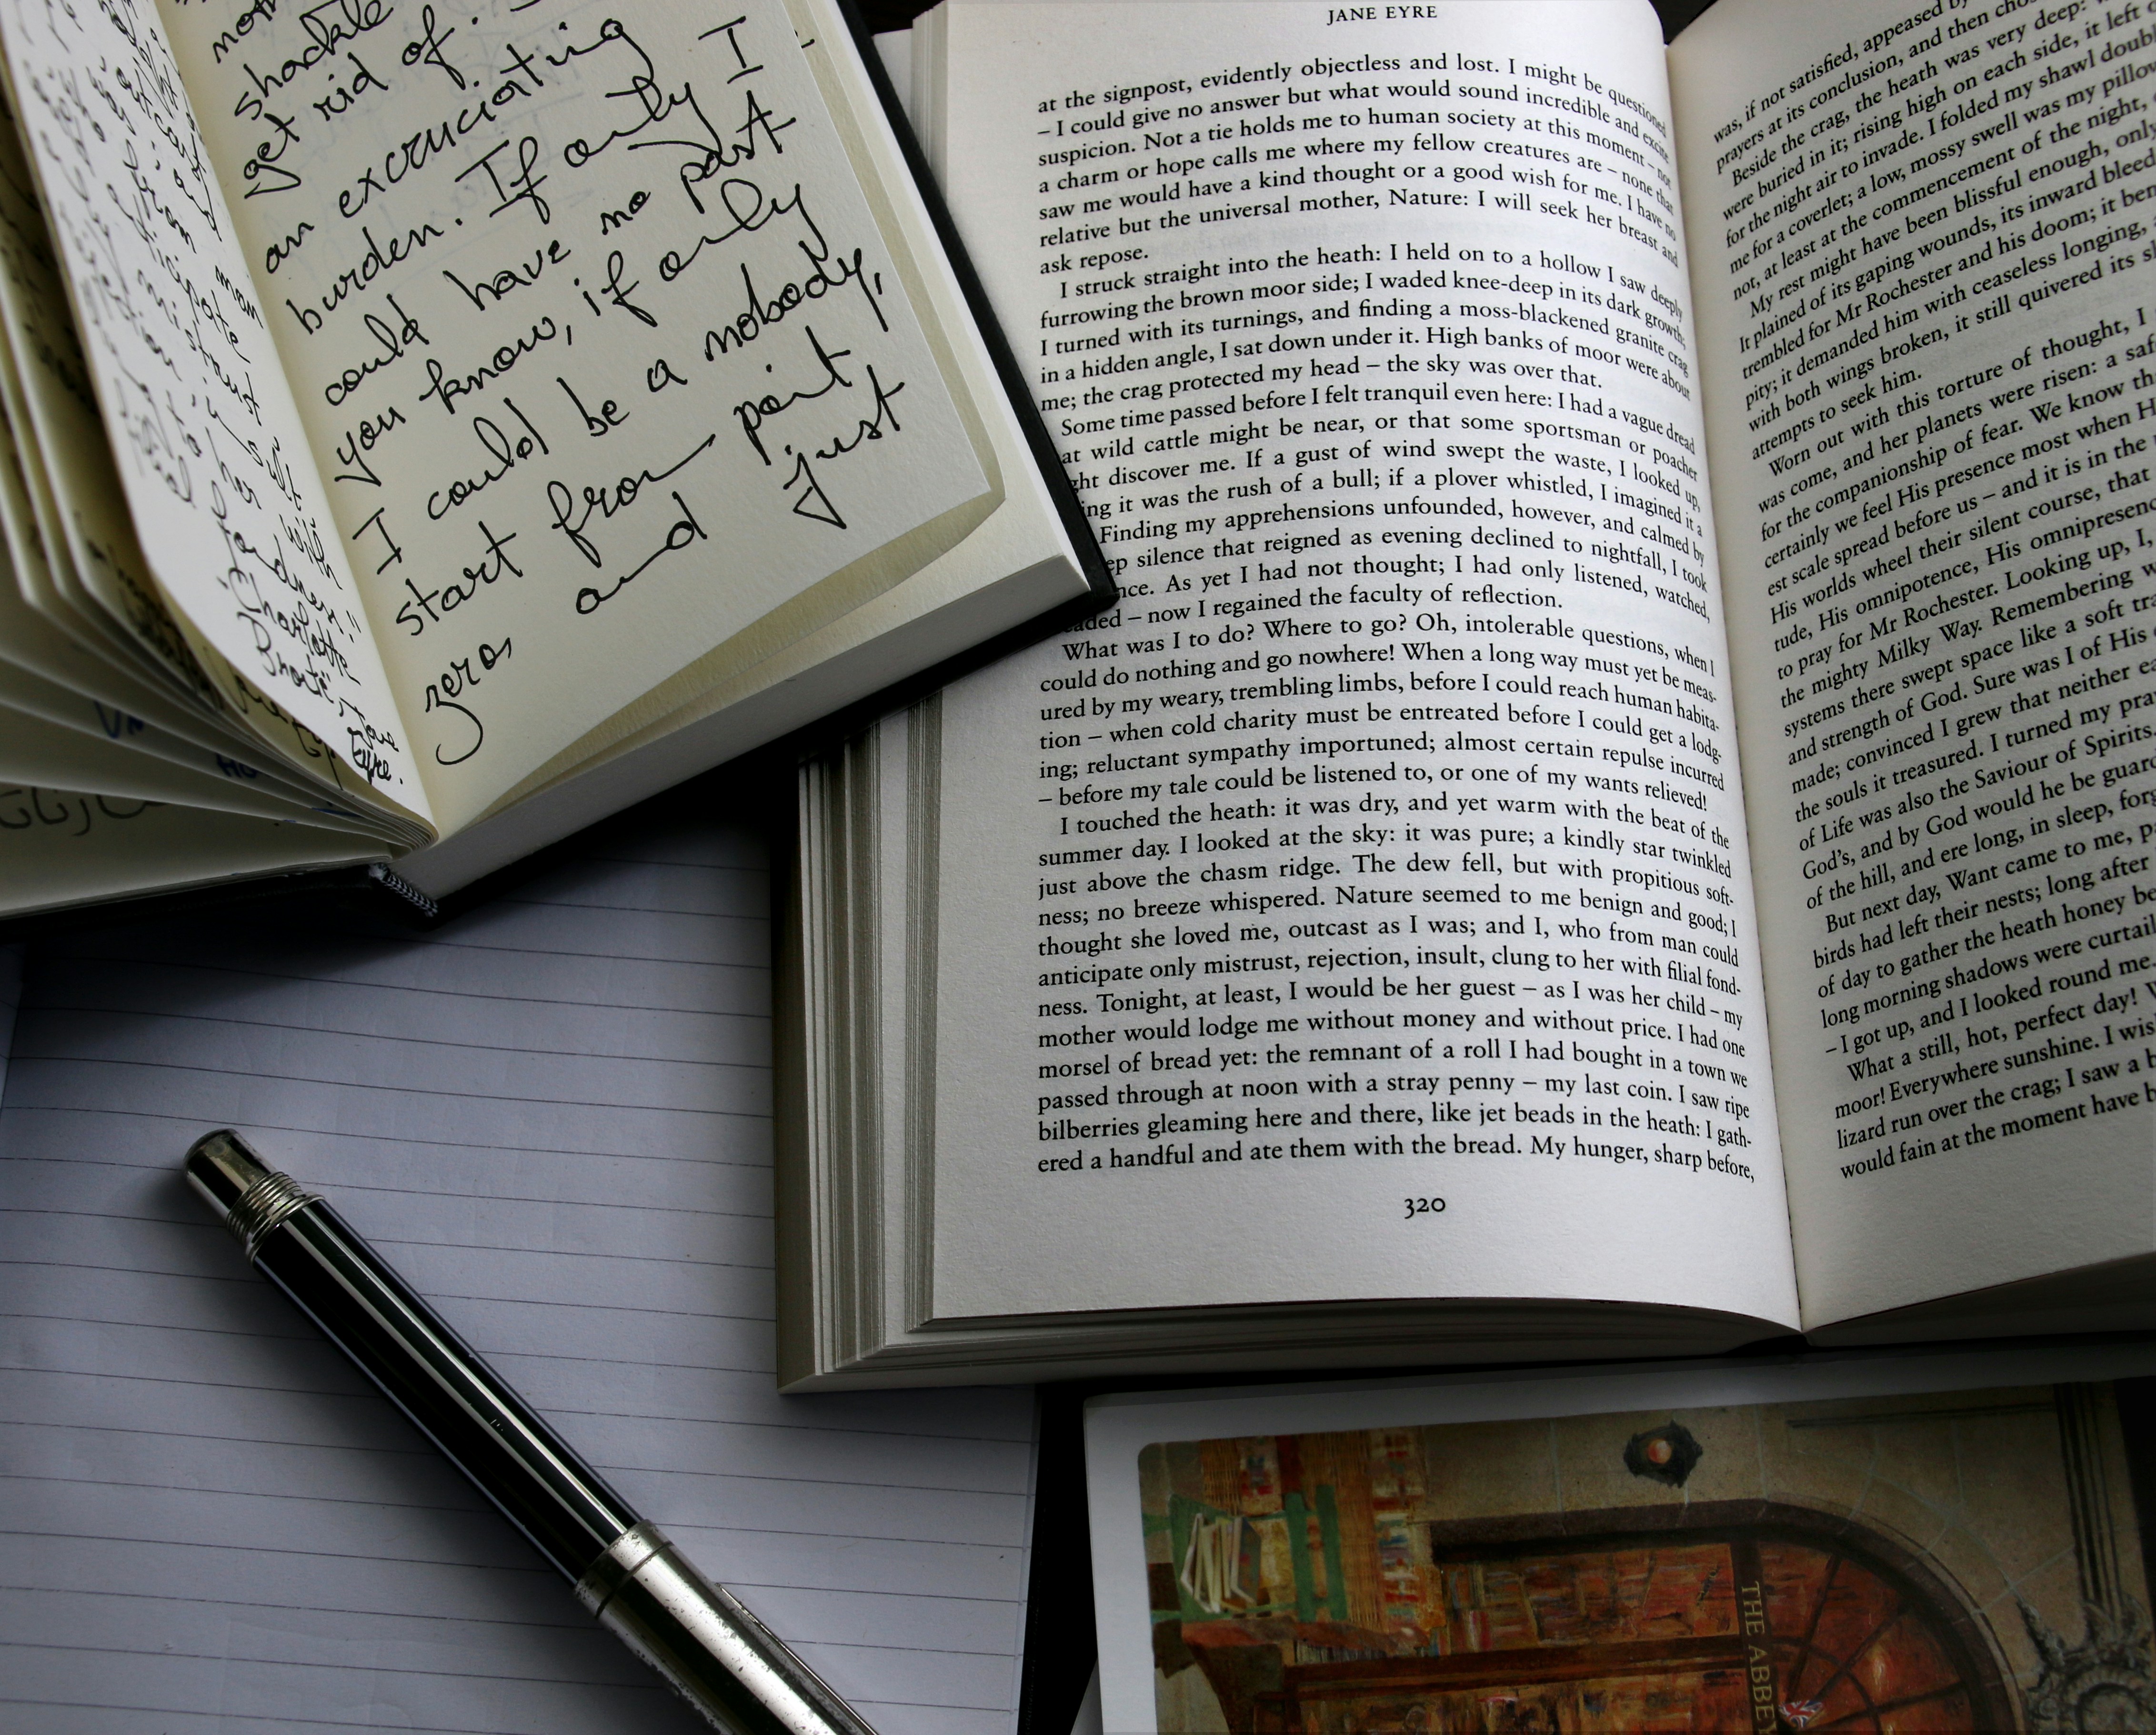 shackle
get rid of.
an excruciating
burden. If only I
could have no past
you know, if only
I could be a nobody,
start from point
zero, and just
man
anticipate
mistrust
fondness."
Charlotte
Brontë, Jane
Eyre.
JANE EYRE
at the signpost, evidently objectless and lost. I might be questioned
– I could give no answer but what would sound incredible and excite
suspicion. Not a tie holds me to human society at this moment – not
a charm or hope calls me where my fellow creatures are – none that
saw me would have a kind thought or a good wish for me. I have no
relative but the universal mother, Nature: I will seek her breast and
ask repose.
I struck straight into the heath: I held on to a hollow I saw deeply
furrowing the brown moor side; I waded knee-deep in its dark growth;
I turned with its turnings, and finding a moss-blackened granite crag
in a hidden angle, I sat down under it. High banks of moor were about
me; the crag protected my head – the sky was over that.
Some time passed before I felt tranquil even here: I had a vague dread
at wild cattle might be near, or that some sportsman or poacher
ght discover me. If a gust of wind swept the waste, I looked up,
ing it was the rush of a bull; if a plover whistled, I imagined it a
Finding my apprehensions unfounded, however, and calmed by
ep silence that reigned as evening declined to nightfall, I took
nce. As yet I had not thought; I had only listened, watched,
eaded – now I regained the faculty of reflection.
What was I to do? Where to go? Oh, intolerable questions, when I
could do nothing and go nowhere! When a long way must yet be meas-
ured by my weary, trembling limbs, before I could reach human habita-
tion – when cold charity must be entreated before I could get a lodg-
ing; reluctant sympathy importuned; almost certain repulse incurred
– before my tale could be listened to, or one of my wants relieved!
I touched the heath: it was dry, and yet warm with the beat of the
summer day. I looked at the sky: it was pure; a kindly star twinkled
just above the chasm ridge. The dew fell, but with propitious soft-
ness; no breeze whispered. Nature seemed to me benign and good; I
thought she loved me, outcast as I was; and I, who from man could
anticipate only mistrust, rejection, insult, clung to her with filial fond-
ness. Tonight, at least, I would be her guest – as I was her child – my
mother would lodge me without money and without price. I had one
morsel of bread yet: the remnant of a roll I had bought in a town we
passed through at noon with a stray penny – my last coin. I saw ripe
bilberries gleaming here and there, like jet beads in the heath: I gath-
ered a handful and ate them with the bread. My hunger, sharp before,
320
was, if not satisfied, appeased by
prayers at its conclusion, and then cho
Beside the crag, the heath was very deep: w
were buried in it; rising high on each side, it left
for the night air to invade. I folded my shawl doubl
me for a coverlet; a low, mossy swell was my pillow
not, at least at the commencement of the night,
My rest might have been blissful enough, only
It plained of its gaping wounds, its inward bleed
trembled for Mr Rochester and his doom; it bem
pity; it demanded him with ceaseless longing,
with both wings broken, it still quivered its sh
attempts to seek him.
Worn out with this torture of thought, I
was come, and her planets were risen: a saf
for the companionship of fear. We know tha
certainly we feel His presence most when H
est scale spread before us – and it is in the
His worlds wheel their silent course, that
tude, His omnipotence, His omnipresenc
to pray for Mr Rochester. Looking up, I,
the mighty Milky Way. Remembering w
systems there swept space like a soft tra
and strength of God. Sure was I of His
made; convinced I grew that neither ea
the souls it treasured. I turned my pra
of Life was also the Saviour of Spirits.
God's, and by God would he be guard
of the hill, and ere long, in sleep, forg
But next day, Want came to me, p
birds had left their nests; long after
of day to gather the heath honey be
long morning shadows were curtail
– I got up, and I looked round me.
What a still, hot, perfect day! W
moor! Everywhere sunshine. I wis
lizard run over the crag; I saw a b
would fain at the moment have b
THE ABBEY